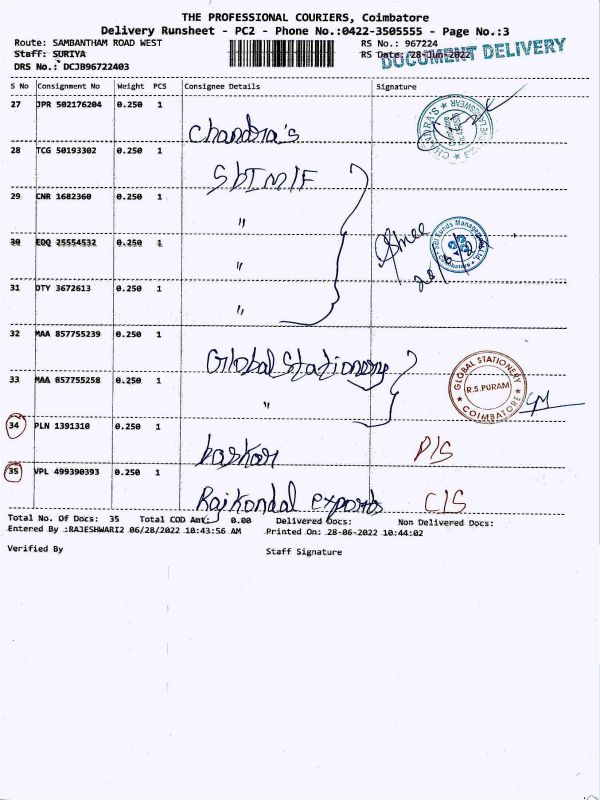 THE PROFESSIONAL COURIERS, Coimbatore
Delivery Runsheet - PC2 - Phone No.:0422-3505555 - Page No.:3
Route: SAMBANTHAM ROAD WEST RS No.: 967224
Staff: SURIYA RS Date: 28-Jun-2022
DOCUMENT DELIVERY
DRS No.: DCJB96722403
S No Consignment No Weight PCS Consignee Details Signature
27 JPR 502176204 0.250 1 Chandra's
CHANDRA'S
28 TCG 50193302 0.250 1 SbIMIF
29 CNR 1682360 0.250 1 "
30 EDQ 25554532 0.250 1 "
SBI Funds Management Coimbatore
31 DTY 3672613 0.250 1 "
32 MAA 857755239 0.250 1 Global Stationery
33 MAA 857755258 0.250 1 "
GLOBAL STATIONERY R.S.PURAM COIMBATORE
34 PLN 1391310 0.250 1 baskar D/S
35 VPL 499390393 0.250 1 Rajkondal exports C/S
Total No. Of Docs: 35 Total COD Amt: 0.00 Delivered Docs: Non Delivered Docs:
Entered By :RAJESHWARI2 06/28/2022 10:43:56 AM Printed On: 28-06-2022 10:44:02
Verified By Staff Signature